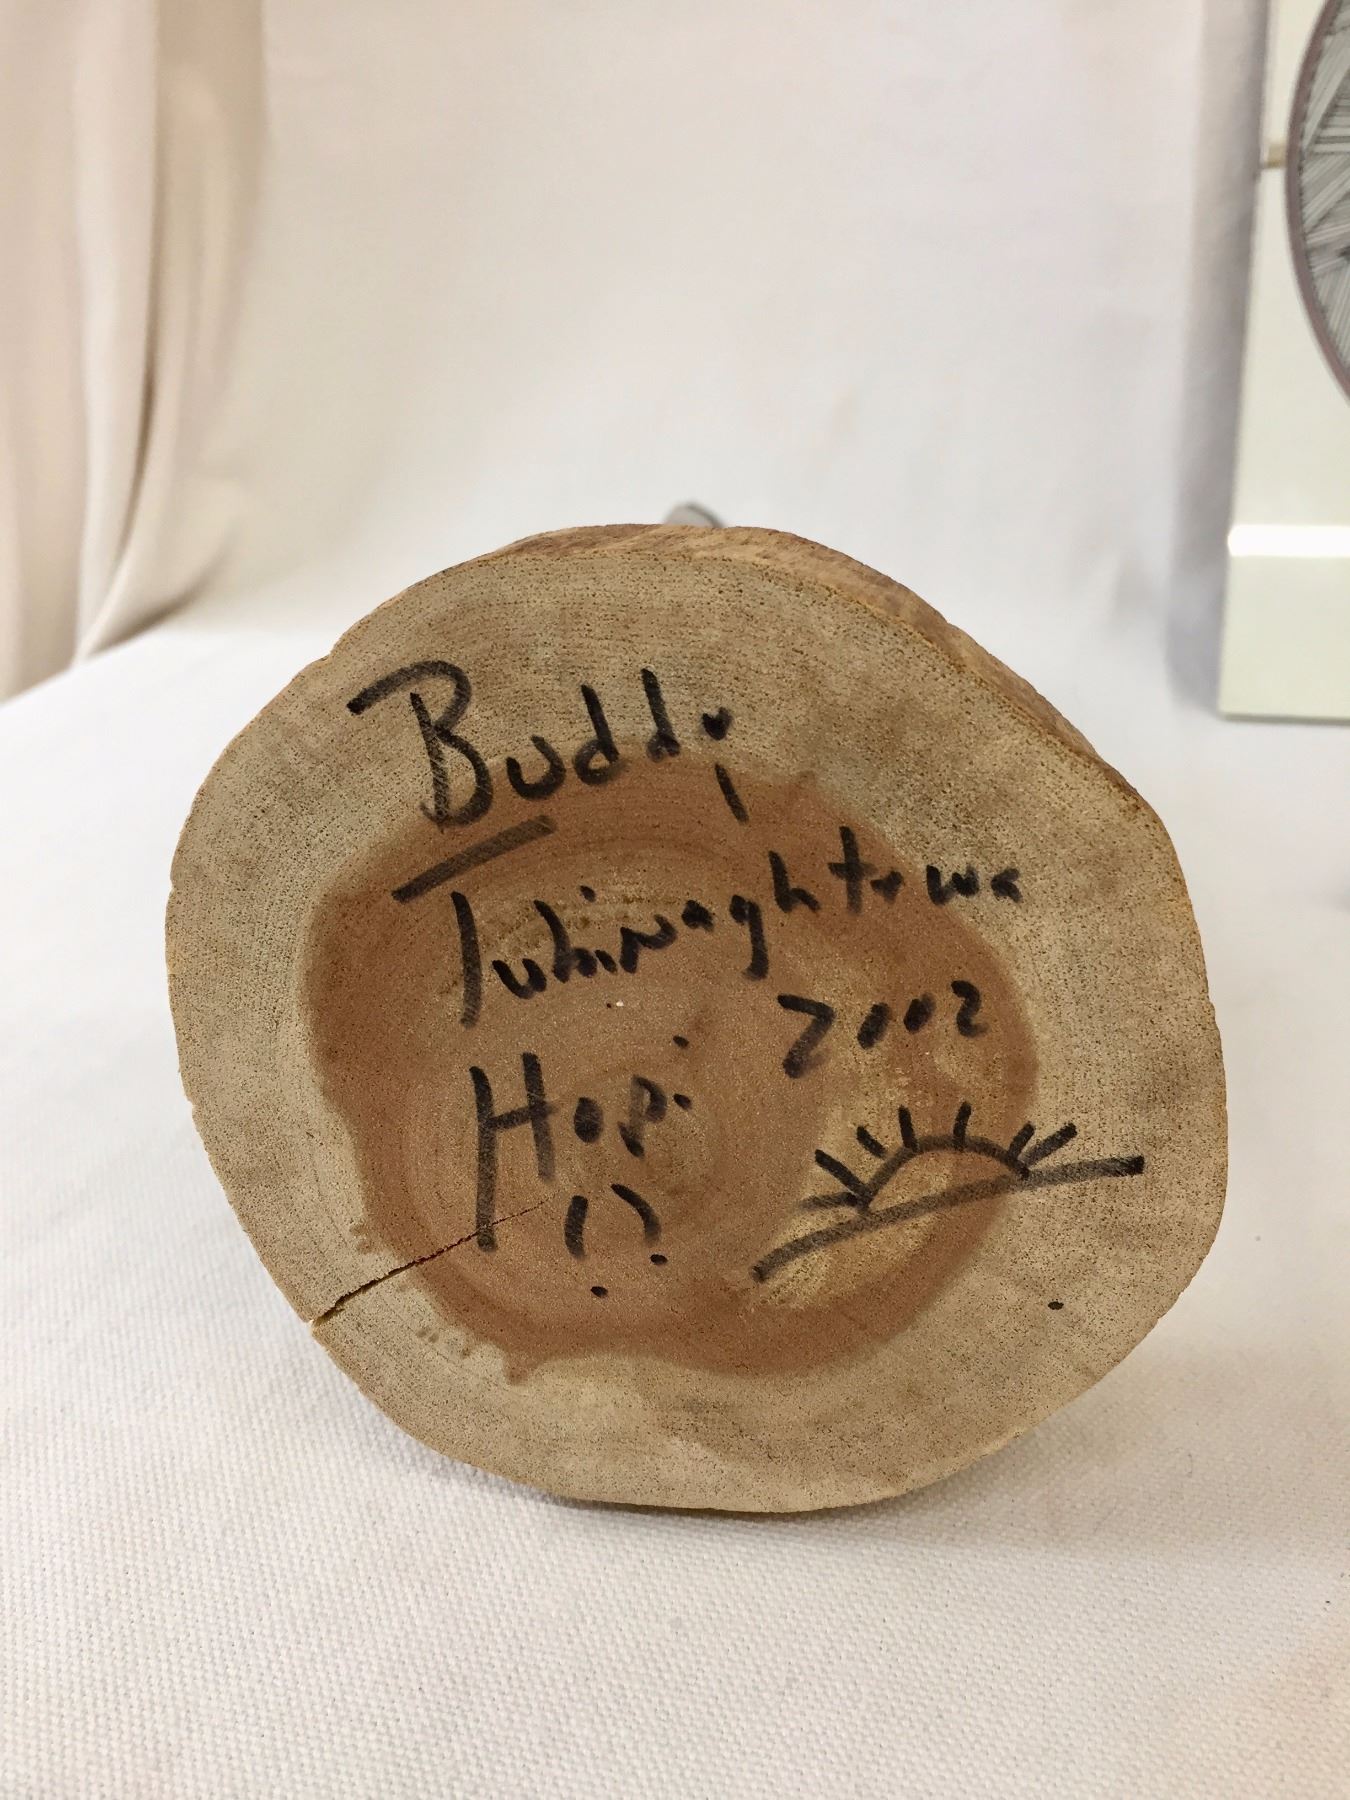 Buddy
Tuhinaghtewa
2002
Hopi